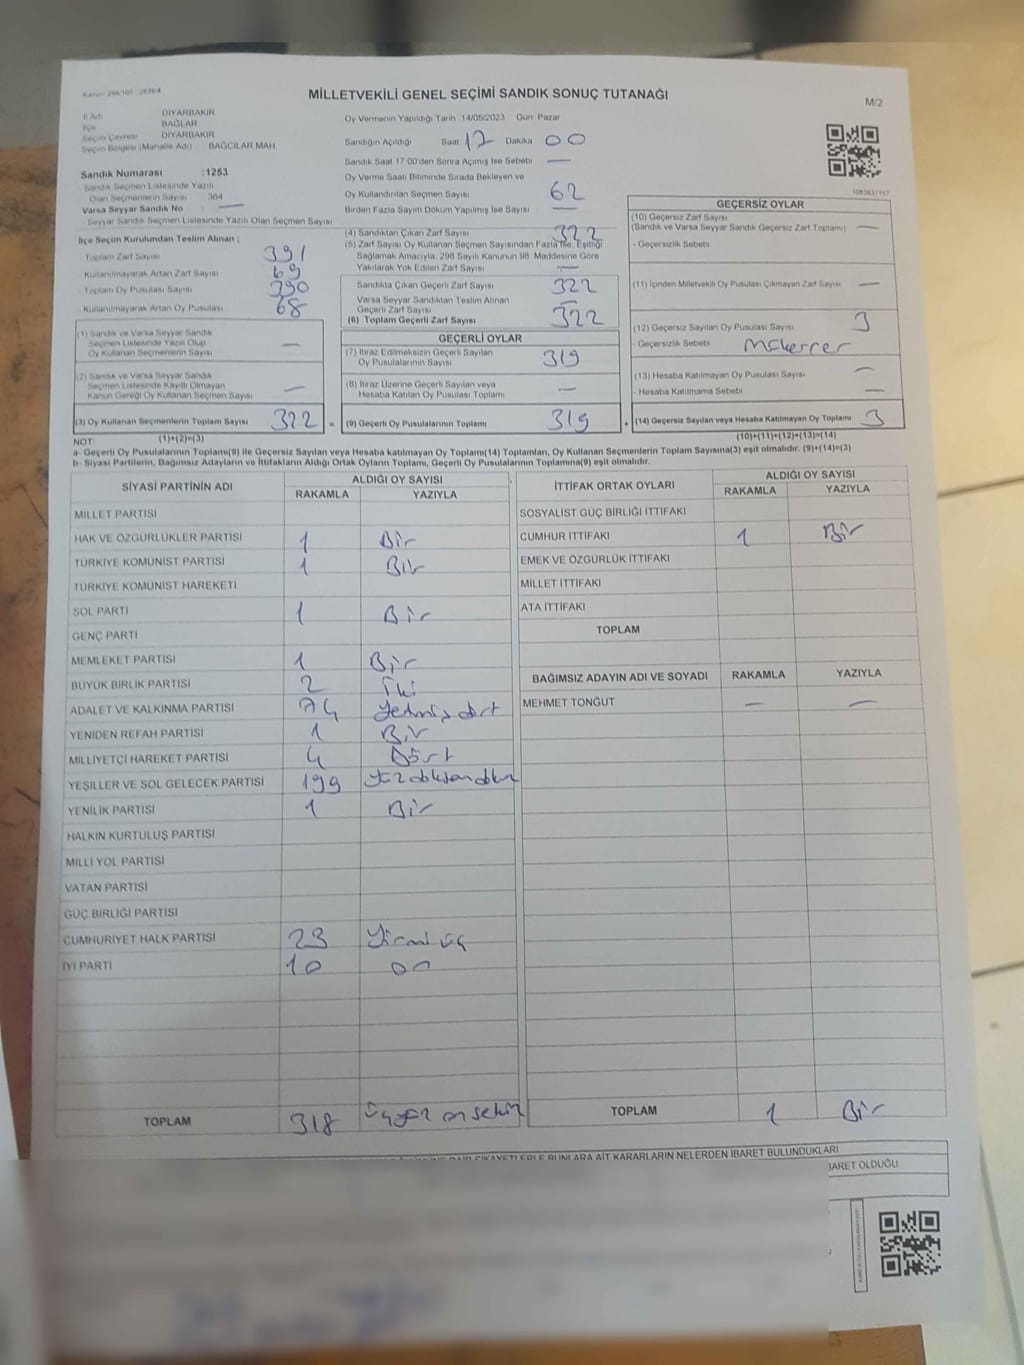 Kanun: 298/105 , 2839/4
MİLLETVEKİLİ GENEL SEÇİMİ SANDIK SONUÇ TUTANAĞI
M/2
İl Adı DİYARBAKIR
İlçe BAĞLAR
Seçim Çevresi DİYARBAKIR
Seçim Bölgesi (Mahalle Adı) BAĞCILAR MAH.
Sandık Numarası :1253
Sandık Seçmen Listesinde Yazılı
Olan Seçmenlerin Sayısı 364
Varsa Seyyar Sandık No : —
Seyyar Sandık Seçmen Listesinde Yazılı Olan Seçmen Sayısı
İlçe Seçim Kurulundan Teslim Alınan ;
- Toplam Zarf Sayısı 391
- Kullanılmayarak Artan Zarf Sayısı 69
- Toplam Oy Pusulası Sayısı 390
- Kullanılmayarak Artan Oy Pusulası 68
(1) Sandık ve Varsa Seyyar Sandık
Seçmen Listesinde Yazılı Olup
Oy Kullanan Seçmenlerin Sayısı —
(2) Sandık ve Varsa Seyyar Sandık
Seçmen Listesinde Kayıtlı Olmayan
Kanun Gereği Oy Kullanan Seçmen Sayısı —
(3) Oy Kullanan Seçmenlerin Toplam Sayısı 322 =
(1)+(2)=(3)
Oy Vermenin Yapıldığı Tarih 14/05/2023 Gün Pazar
Sandığın Açıldığı Saat 17 Dakika 00
Sandık Saat 17:00'den Sonra Açılmış İse Sebebi —
Oy Verme Saati Bitiminde Sırada Bekleyen ve
Oy Kullandırılan Seçmen Sayısı 62
Birden Fazla Sayım Döküm Yapılmış İse Sayısı —
(4) Sandıktan Çıkan Zarf Sayısı 322
(5) Zarf Sayısı Oy Kullanan Seçmen Sayısından Fazla İse, Eşitliği
Sağlamak Amacıyla, 298 Sayılı Kanunun 98. Maddesine Göre
Yakılarak Yok Edilen Zarf Sayısı —
Sandıkta Çıkan Geçerli Zarf Sayısı 322
Varsa Seyyar Sandıktan Teslim Alınan
Geçerli Zarf Sayısı —
(6) Toplam Geçerli Zarf Sayısı 322
GEÇERLİ OYLAR
(7) İtiraz Edilmeksizin Geçerli Sayılan
Oy Pusulalarının Sayısı 319
(8) İtiraz Üzerine Geçerli Sayılan veya
Hesaba Katılan Oy Pusulası Toplamı —
(9) Geçerli Oy Pusulalarının Toplamı 319 +
GEÇERSİZ OYLAR
(10) Geçersiz Zarf Sayısı
(Sandık ve Varsa Seyyar Sandık Geçersiz Zarf Toplamı) —
- Geçersizlik Sebebi
(11) İçinden Milletvekili Oy Pusulası Çıkmayan Zarf Sayısı —
(12) Geçersiz Sayılan Oy Pusulası Sayısı 3
- Geçersizlik Sebebi Mükerrer
(13) Hesaba Katılmayan Oy Pusulası Sayısı —
- Hesaba Katılmama Sebebi —
(14) Geçersiz Sayılan veya Hesaba Katılmayan Oy Toplamı 3
(10)+(11)+(12)+(13)=(14)
NOT:
a- Geçerli Oy Pusulalarının Toplamı(9) ile Geçersiz Sayılan veya Hesaba katılmayan Oy Toplamı(14) Toplamları, Oy Kullanan Seçmenlerin Toplam Sayısına(3) eşit olmalıdır. (9)+(14)=(3)
b- Siyasi Partilerin, Bağımsız Adayların ve İttifakların Aldığı Ortak Oyların Toplamı, Geçerli Oy Pusulalarının Toplamına(9) eşit olmalıdır.
SİYASİ PARTİNİN ADI ALDIĞI OY SAYISI
RAKAMLA YAZIYLA
MİLLET PARTİSİ
HAK VE ÖZGÜRLÜKLER PARTİSİ 1 Bir
TÜRKİYE KOMÜNİST PARTİSİ 1 Bir
TÜRKİYE KOMÜNİST HAREKETİ
SOL PARTİ 1 Bir
GENÇ PARTİ
MEMLEKET PARTİSİ 1 Bir
BÜYÜK BİRLİK PARTİSİ 2 İki
ADALET VE KALKINMA PARTİSİ 74 Yetmiş dört
YENİDEN REFAH PARTİSİ 1 Bir
MİLLİYETÇİ HAREKET PARTİSİ 4 Dört
YEŞİLLER VE SOL GELECEK PARTİSİ 199 Yüz doksan dokuz
YENİLİK PARTİSİ 1 Bir
HALKIN KURTULUŞ PARTİSİ
MİLLİ YOL PARTİSİ
VATAN PARTİSİ
GÜÇ BİRLİĞİ PARTİSİ
CUMHURİYET HALK PARTİSİ 23 Yirmi üç
İYİ PARTİ 10 On
TOPLAM 318 Üçyüz on sekiz
İTTİFAK ORTAK OYLARI ALDIĞI OY SAYISI
RAKAMLA YAZIYLA
SOSYALİST GÜÇ BİRLİĞİ İTTİFAKI
CUMHUR İTTİFAKI 1 Bir
EMEK VE ÖZGÜRLÜK İTTİFAKI
MİLLET İTTİFAKI
ATA İTTİFAKI
TOPLAM
BAĞIMSIZ ADAYIN ADI VE SOYADI RAKAMLA YAZIYLA
MEHMET TONĞUT — —
TOPLAM 1 Bir
ŞİKAYETLERLE BUNLARA AİT KARARLARIN NELERDEN İBARET BULUNDUKLARI
İBARET OLDUĞU